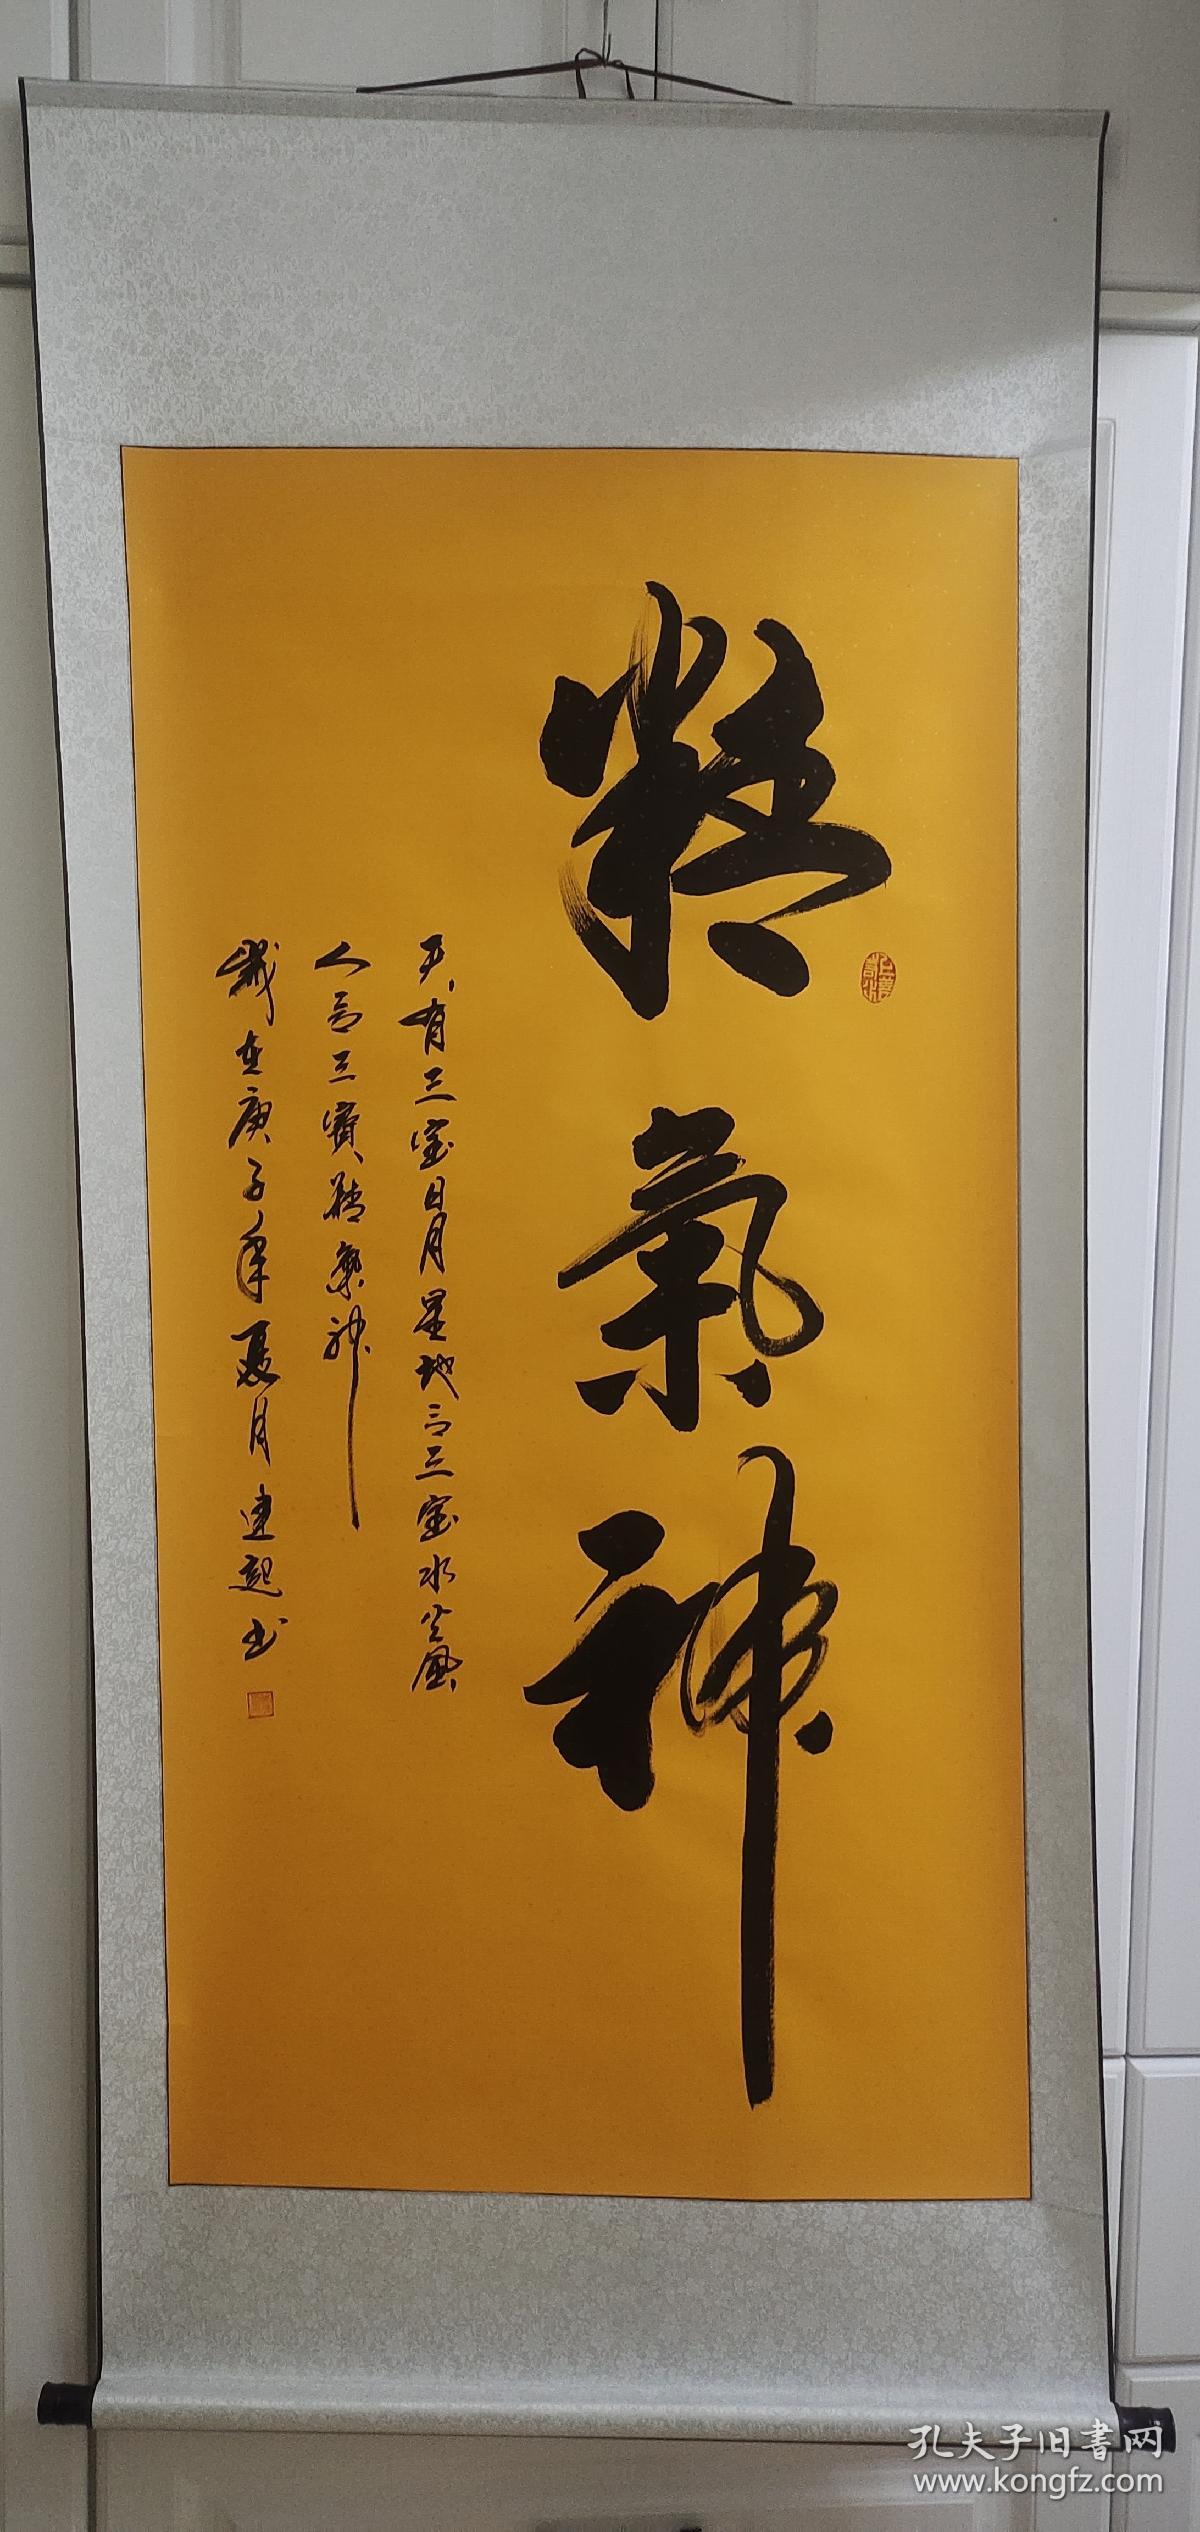 精氣神
天有三宝日月星地有三宝水火風
人有三寶精氣神
歲在庚子年夏月建起书
孔夫子旧書网
www.kongfz.com